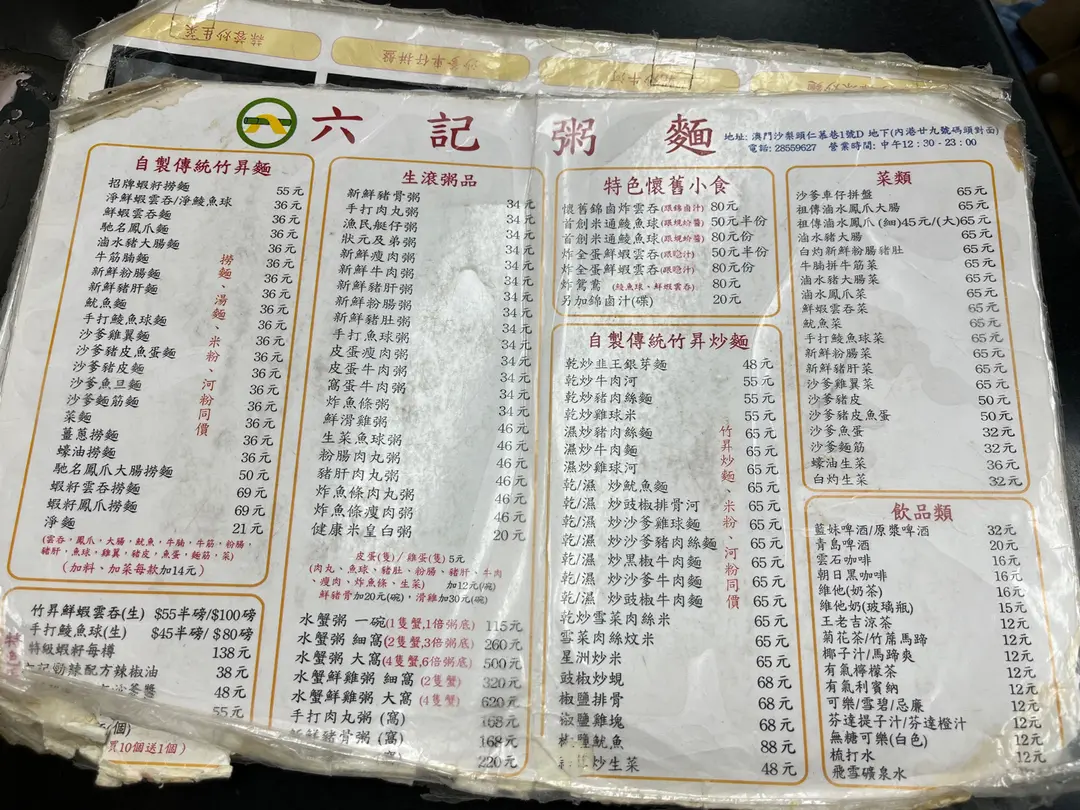 蒜蓉炒韭菜
沙爹車仔拼盤
六記粥麵
地址: 澳門沙梨頭仁慕巷1號D 地下(內港廿九號碼頭對面)
電話: 28559627 營業時間: 中午12:30 - 23:00
自製傳統竹昇麵
招牌蝦籽撈麵 55元
淨鮮蝦雲吞/淨鯪魚球 36元
鮮蝦雲吞麵 36元
馳名鳳爪麵 36元
滷水豬大腸麵 36元
牛筋腩麵 36元
新鮮粉腸麵 36元
新鮮豬肝麵 36元
魷魚麵 36元
手打鯪魚球麵 36元
沙爹雞翼麵 36元
沙爹豬皮魚蛋麵 36元
沙爹豬皮麵 36元
沙爹魚旦麵 36元
沙爹麵筋麵 36元
菜麵 36元
薑蔥撈麵 36元
蠔油撈麵 36元
馳名鳳爪大腸撈麵 50元
蝦籽雲吞撈麵 69元
蝦籽鳳爪撈麵 69元
淨麵 21元
撈麵、湯麵、米粉、河粉同價
(雲吞,鳳爪,大腸,魷魚,牛腩,牛筋,粉腸,
豬肝,魚球,雞翼,豬皮,魚蛋,麵筋,菜)
(加料、加菜每款加14元)
竹昇鮮蝦雲吞(生) $55半磅/$100磅
手打鯪魚球(生) $45半磅/$80磅
特級蝦籽每樽 138元
記勁辣配方辣椒油 38元
沙爹醬 48元
55元
(個)
買10個送1個)
特色
生滾粥品
新鮮豬骨粥 34元
手打肉丸粥 34元
漁民艇仔粥 34元
狀元及弟粥 34元
新鮮瘦肉粥 34元
新鮮牛肉粥 34元
新鮮豬肝粥 34元
新鮮粉腸粥 34元
新鮮豬肚粥 34元
手打魚球粥 34元
皮蛋瘦肉粥 34元
皮蛋牛肉粥 34元
窩蛋牛肉粥 34元
炸魚條粥 34元
鮮滑雞粥 46元
生菜魚球粥 46元
粉腸肉丸粥 46元
豬肝肉丸粥 46元
炸魚條肉丸粥 46元
炸魚條瘦肉粥 46元
健康米皇白粥 20元
皮蛋(隻)/雞蛋(隻)5元
(肉丸、魚球、豬肚、粉腸、豬肝、牛肉
、瘦肉、炸魚條、生菜) 加12元(/碗)
鮮豬骨加20元(碗),滑雞加30元(碗)
水蟹粥 一碗(1隻蟹,1倍粥底) 115元
水蟹粥 細窩(2隻蟹,3倍粥底) 260元
水蟹粥 大窩(4隻蟹,6倍粥底) 500元
水蟹鮮雞粥 細窩(2隻蟹) 320元
水蟹鮮雞粥 大窩(4隻蟹) 620元
手打肉丸粥(窩) 168元
新鮮豬骨粥(窩) 168元
(窩) 220元
特色懷舊小食
懷舊錦鹵炸雲吞(跟錦鹵汁) 80元
首創米通鯪魚球(跟蜆蚧醬) 50元半份
首創米通鯪魚球(跟蜆蚧醬) 80元份
炸全蛋鮮蝦雲吞(跟喼汁) 50元半份
炸全蛋鮮蝦雲吞(跟喼汁) 80元份
炸鴛鴦 (鯪魚球、鮮蝦雲吞) 80元
另加錦鹵汁(碟) 20元
自製傳統竹昇炒麵
乾炒韭王銀芽麵 48元
乾炒牛肉河 55元
乾炒豬肉絲麵 55元
乾炒雞球米 55元
濕炒豬肉絲麵 65元
濕炒牛肉麵 65元
濕炒雞球河 65元
乾/濕 炒魷魚麵 65元
乾/濕 炒豉椒排骨河 65元
乾/濕 炒沙爹雞球麵 65元
乾/濕 炒沙爹豬肉絲麵 65元
乾/濕 炒黑椒牛肉麵 65元
乾/濕 炒沙爹牛肉麵 65元
乾/濕 炒豉椒牛肉麵 65元
乾炒雪菜肉絲米 65元
雪菜肉絲炆米 65元
星洲炒米 65元
豉椒炒蜆 68元
椒鹽排骨 68元
椒鹽雞塊 68元
椒鹽魷魚 88元
炒生菜 48元
竹昇炒麵、米粉、河粉同價
菜類
沙爹車仔拼盤 65元
祖傳滷水鳳爪大腸 65元
祖傳滷水鳳爪(細)45元/(大)65元
滷水豬大腸 65元
白灼新鮮粉腸豬肚 65元
牛腩拼牛筋菜 65元
滷水豬大腸菜 65元
滷水鳳爪菜 65元
鮮蝦雲吞菜 65元
魷魚菜 65元
手打鯪魚球菜 65元
新鮮粉腸菜 65元
新鮮豬肝菜 65元
沙爹雞翼菜 65元
沙爹豬皮 50元
沙爹豬皮魚蛋 50元
沙爹魚蛋 32元
沙爹麵筋 32元
蠔油生菜 36元
白灼生菜 32元
飲品類
藍妹啤酒/原漿啤酒 32元
青島啤酒 20元
雲石咖啡 16元
朝日黑咖啡 16元
維他(奶茶) 16元
維他奶(玻璃瓶) 15元
王老吉涼茶 12元
菊花茶/竹蔗馬蹄 12元
椰子汁/馬蹄爽 12元
有氣檸檬茶 12元
有氣利賓納 12元
可樂/雪碧/忌廉 12元
芬達提子汁/芬達橙汁 12元
無糖可樂(白色) 12元
梳打水 12元
飛雪礦泉水 12元